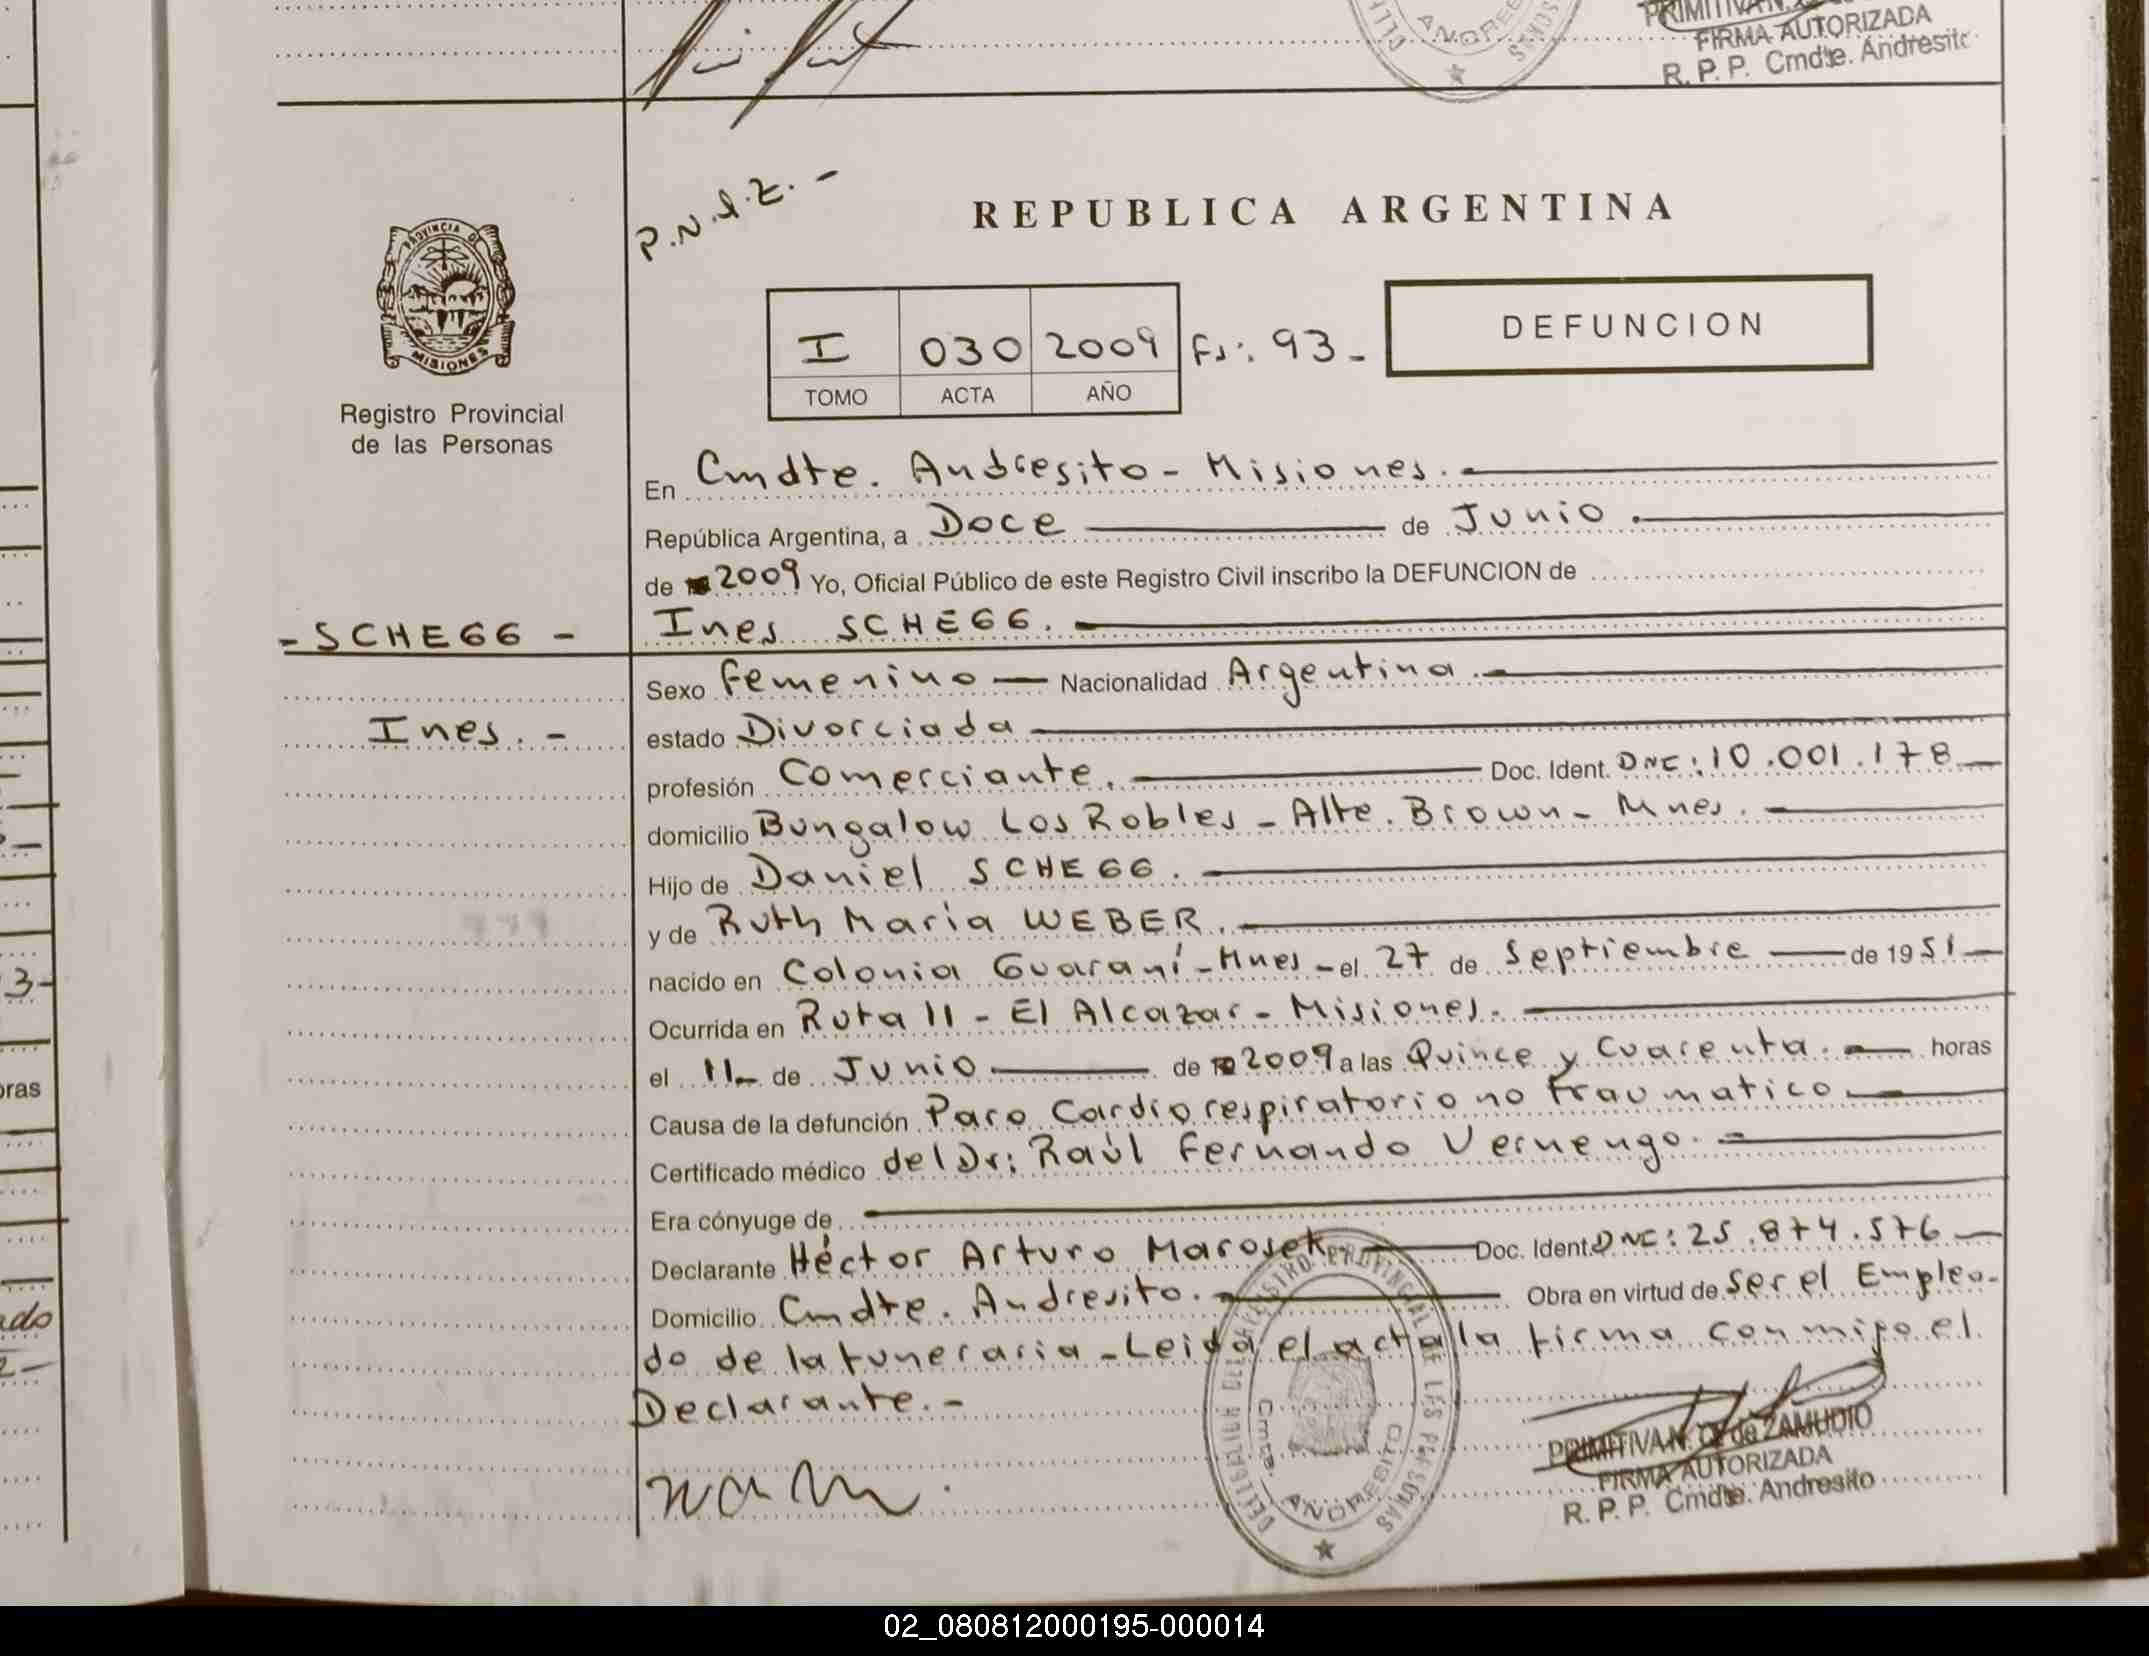 PRIMITIVA N.
FIRMA AUTORIZADA
R. P. P. Cmdte. Andresito
ANDRE
P.N.I.Z. -
REPUBLICA ARGENTINA
PROVINCIA DE
MISIONES
Registro Provincial
de las Personas
I 030 2009 Fs: 93 -
TOMO ACTA AÑO
DEFUNCION
En Cmdte. Andresito - Misiones. -
República Argentina, a Doce de Junio. -
de 2009 Yo, Oficial Público de este Registro Civil inscribo la DEFUNCION de
- SCHEGG - Ines SCHEGG. -
Sexo Femenino - Nacionalidad Argentina. -
Ines. - estado Divorciada
profesión Comerciante. Doc. Ident. DNI: 10.001.178 -
domicilio Bungalow Los Robles - Alte. Brown - Mnes. -
Hijo de Daniel SCHEGG. -
y de Ruth Maria WEBER. -
nacido en Colonia Guaraní - Mnes - el 27 de Septiembre de 1951 -
Ocurrida en Ruta 11 - El Alcazar - Misiones. -
el 11 - de Junio de 2009 a las Quince y Cuarenta. - horas
Causa de la defunción Paro Cardiorespiratorio no traumatico. -
Certificado médico del Dr: Raúl Fernando Vernengo. -
Era cónyuge de
Declarante Héctor Arturo Marosek. - Doc. Ident. DNI: 25.874.576 -
Domicilio Cmdte. Andresito. - Obra en virtud de ser el Emplea-
do de la funeraria - Leida el acta la firma conmigo el
Declarante. -
DELEGACION DEL REGISTRO PROVINCIAL DE LAS PERSONAS
Cmte. ANDRESITO
PRIMITIVA N. de ZAMUDIO
FIRMA AUTORIZADA
R. P. P. Cmdte. Andresito
3-
oras
ado
2-
02_080812000195-000014